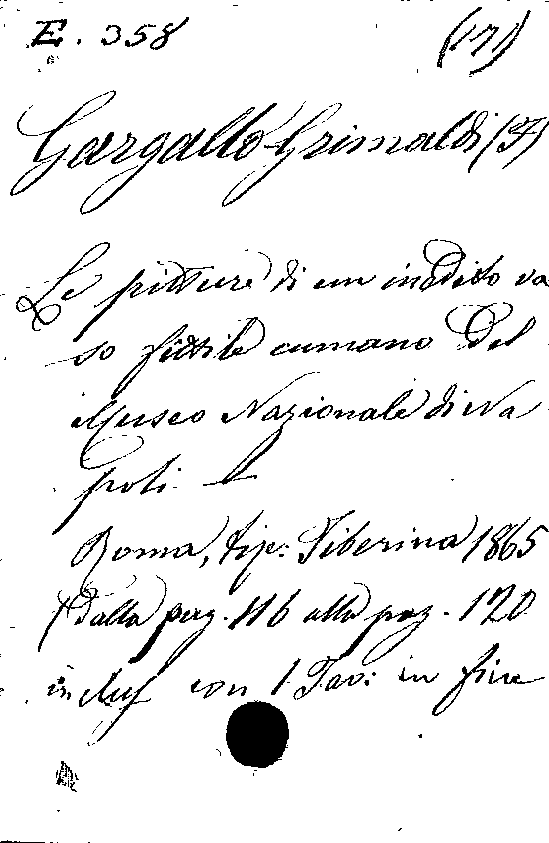 E. 358 (171)
Gargallo-Grimaldi (F)
Le pitture di un inedito va
so fittile cumano del
Museo Nazionale di Na
poli. —
Roma, tip: Tiberina 1865
(dalla pag. 116 alla pag. 120
incluſ con 1 Tav: in fine